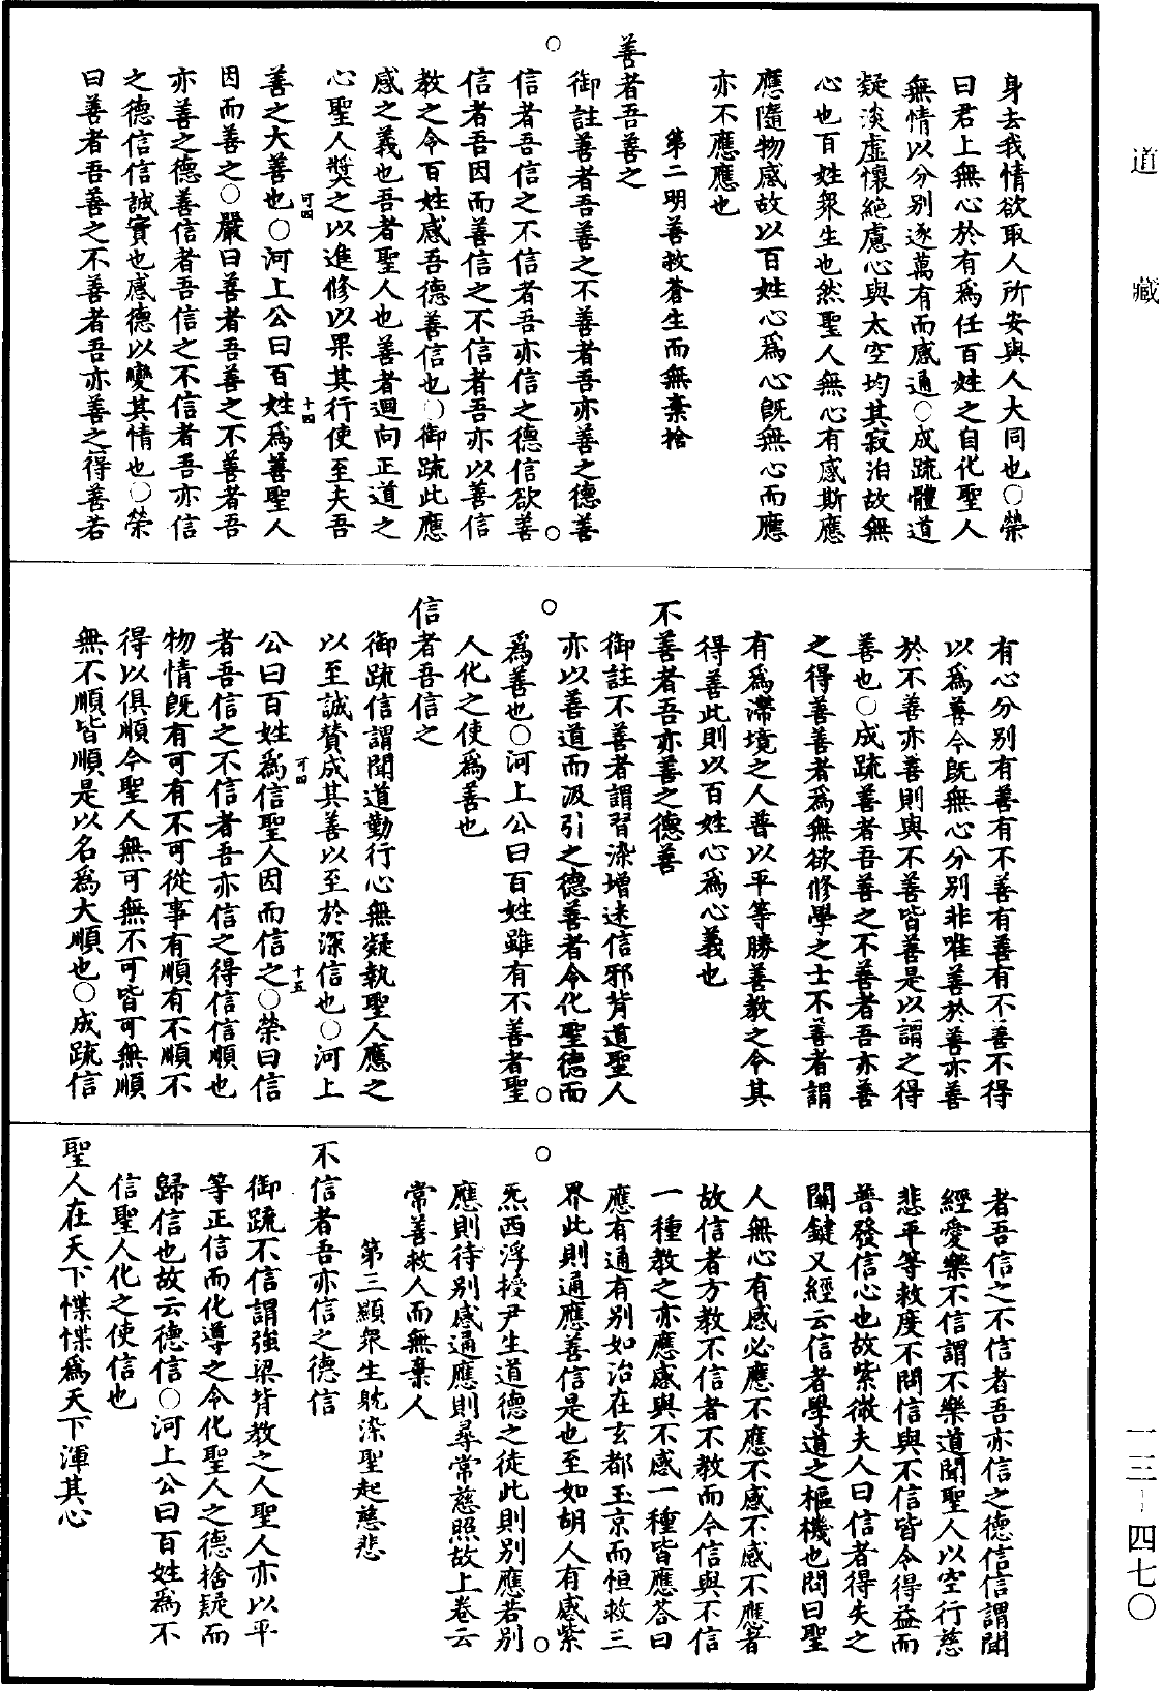 道藏
身去我情欲取人所安與人大同也○榮
曰君上無心於有為任百姓之自化聖人
無情以分別逐萬有而感通○成疏體道
疑淡虛懷絕慮心與太空均其寂泊故無
心也百姓眾生也然聖人無心有感斯應
應隨物感故以百姓心為心既無心而應
亦不應應也
第二明善救蒼生而無棄捨
善者吾善之
御註善者吾善之不善者吾亦善之德善
信者吾信之不信者吾亦信之德信欲善
信者吾因而善信之不信者吾亦以善信
教之令百姓感吾德善信也○御疏此應
感之義也吾者聖人也善者迴向正道之
心聖人獎之以進修以果其行使至夫吾
善之大善也○河上公曰百姓為善聖人
可四 十四
因而善之○嚴曰善者吾善之不善者吾
亦善之德善信者吾信之不信者吾亦信
之德信信誠實也感德以變其情也○榮
曰善者吾善之不善者吾亦善之得善若
有心分別有善有不善有善有不善不得
以為善今既無心分別非唯善於善亦善
於不善亦善則與不善皆善是以謂之得
善也○成疏善者吾善之不善者吾亦善
之得善善者為無欲修學之士不善者謂
有為滯境之人普以平等勝善教之令其
得善此則以百姓心為心義也
不善者吾亦善之德善
御註不善者謂習染增迷信邪背道聖人
亦以善道而汲引之德善者令化聖德而
為善也○河上公曰百姓雖有不善者聖
人化之使為善也
信者吾信之
御疏信謂聞道勤行心無疑執聖人應之
以至誠贊成其善以至於深信也○河上
可四 十五
公曰百姓為信聖人因而信之○榮曰信
者吾信之不信者吾亦信之得信信順也
物情既有可有不可從事有順有不順不
得以俱順今聖人無可無不可皆可無順
無不順皆順是以名為大順也○成疏信
者吾信之不信者吾亦信之德信信謂聞
經愛樂不信謂不樂道聞聖人以空行慈
悲平等救度不問信與不信皆令得益而
普發信心也故紫微夫人曰信者得失之
關鍵又經云信者學道之樞機也問曰聖
人無心有感必應不應不感不感不應者
故信者方教不信者不教而今信與不信
一種教之亦應感與不感一種皆應答曰
應有通有別如治在玄都玉京而恒救三
界此則通應善信是也至如胡人有感紫
炁西浮授尹生道德之徒此則別應若別
應則待別感通應則尋常慈照故上卷云
常善救人而無棄人
第三顯眾生躭染聖起慈悲
不信者吾亦信之德信
御疏不信謂強梁背教之人聖人亦以平
等正信而化導之令化聖人之德捨疑而
歸信也故云德信○河上公曰百姓為不
信聖人化之使信也
聖人在天下惵惵為天下渾其心
一三-四七〇